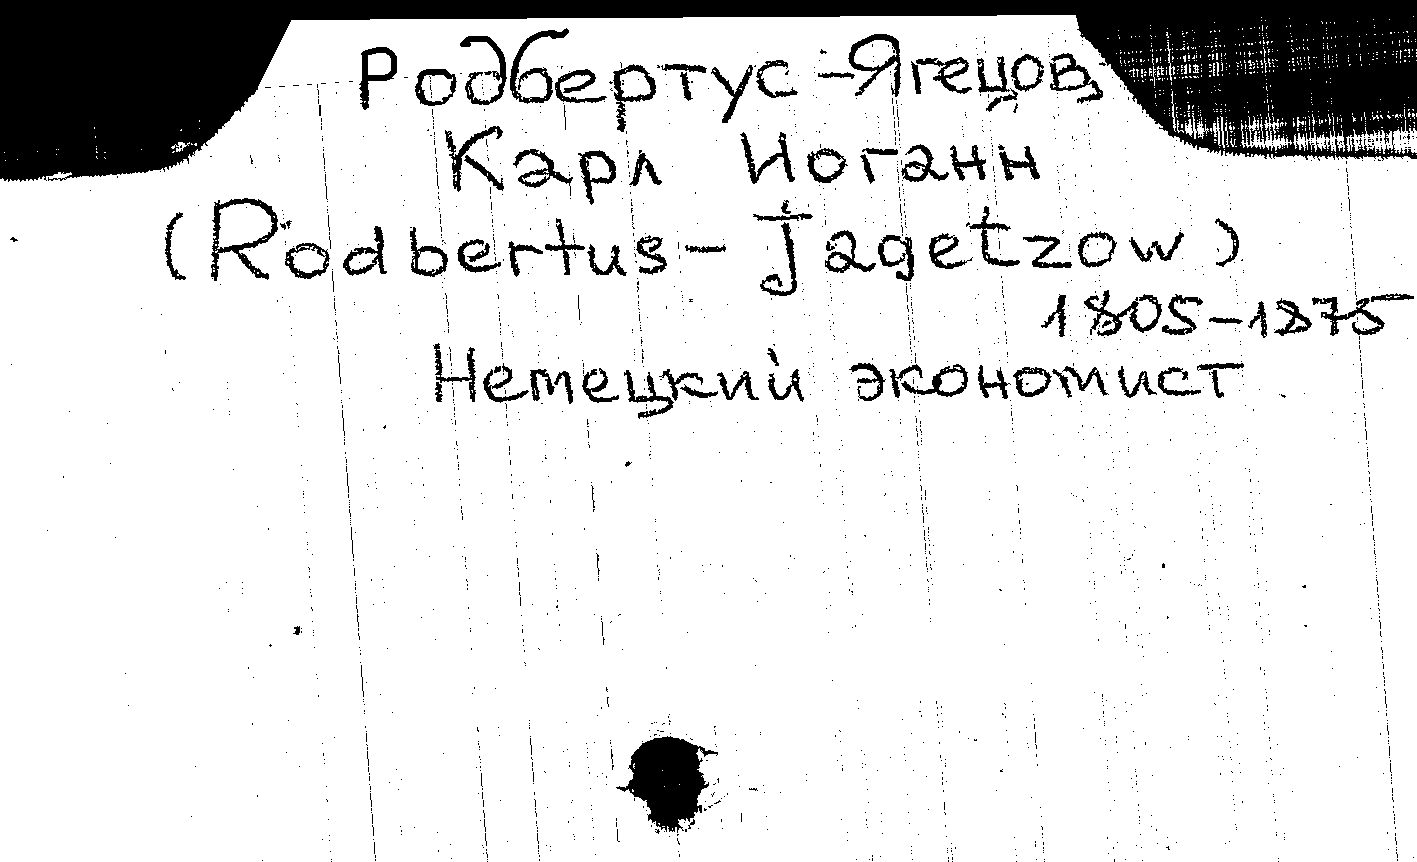 Родбертус-Ягецов,
Карл Иоганн
(Rodbertus-Jagetzow)
1805-1875
Немецкий экономист